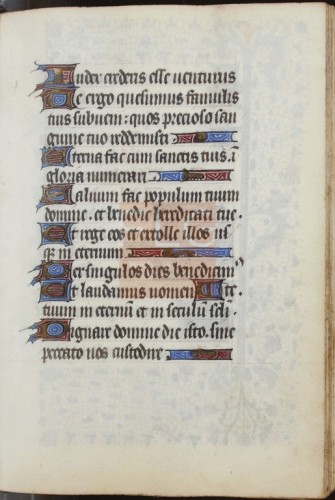 Iudex crederis esse uenturus
Te ergo quesumus famulis
tuis subueni : quos precioso san
guine tuo redemisti
Eterna fac cum sanctis tuis . ī
gloria numerari
Saluum fac populum tuum
domine . et benedic hereditati tue .
Et rege eos et extolle illos us
q̄ in eternum
Per singulos dies benedicim⁹
Et laudamus nomen te
tuum in eternū et in seculū sclī .
Dignare domine die isto . sine
peccato nos custodire